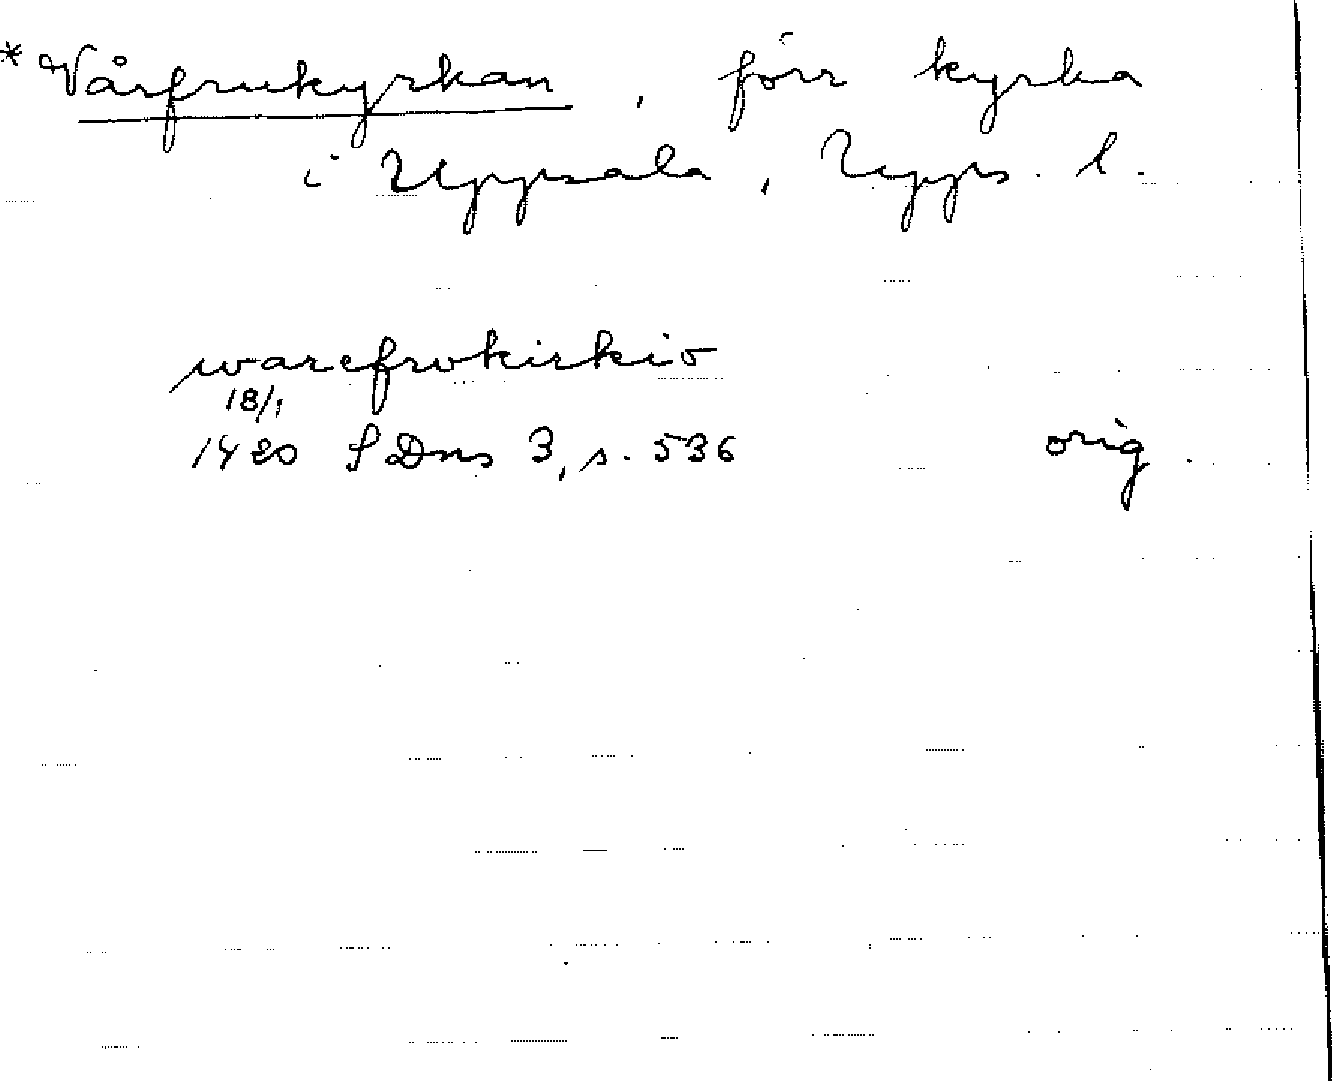 *Vårfrukyrkan, förr kyrka
i Uppsala, Upps. l.
warefrvkirkio
18/1
1420 SDns 3, s. 536 orig.